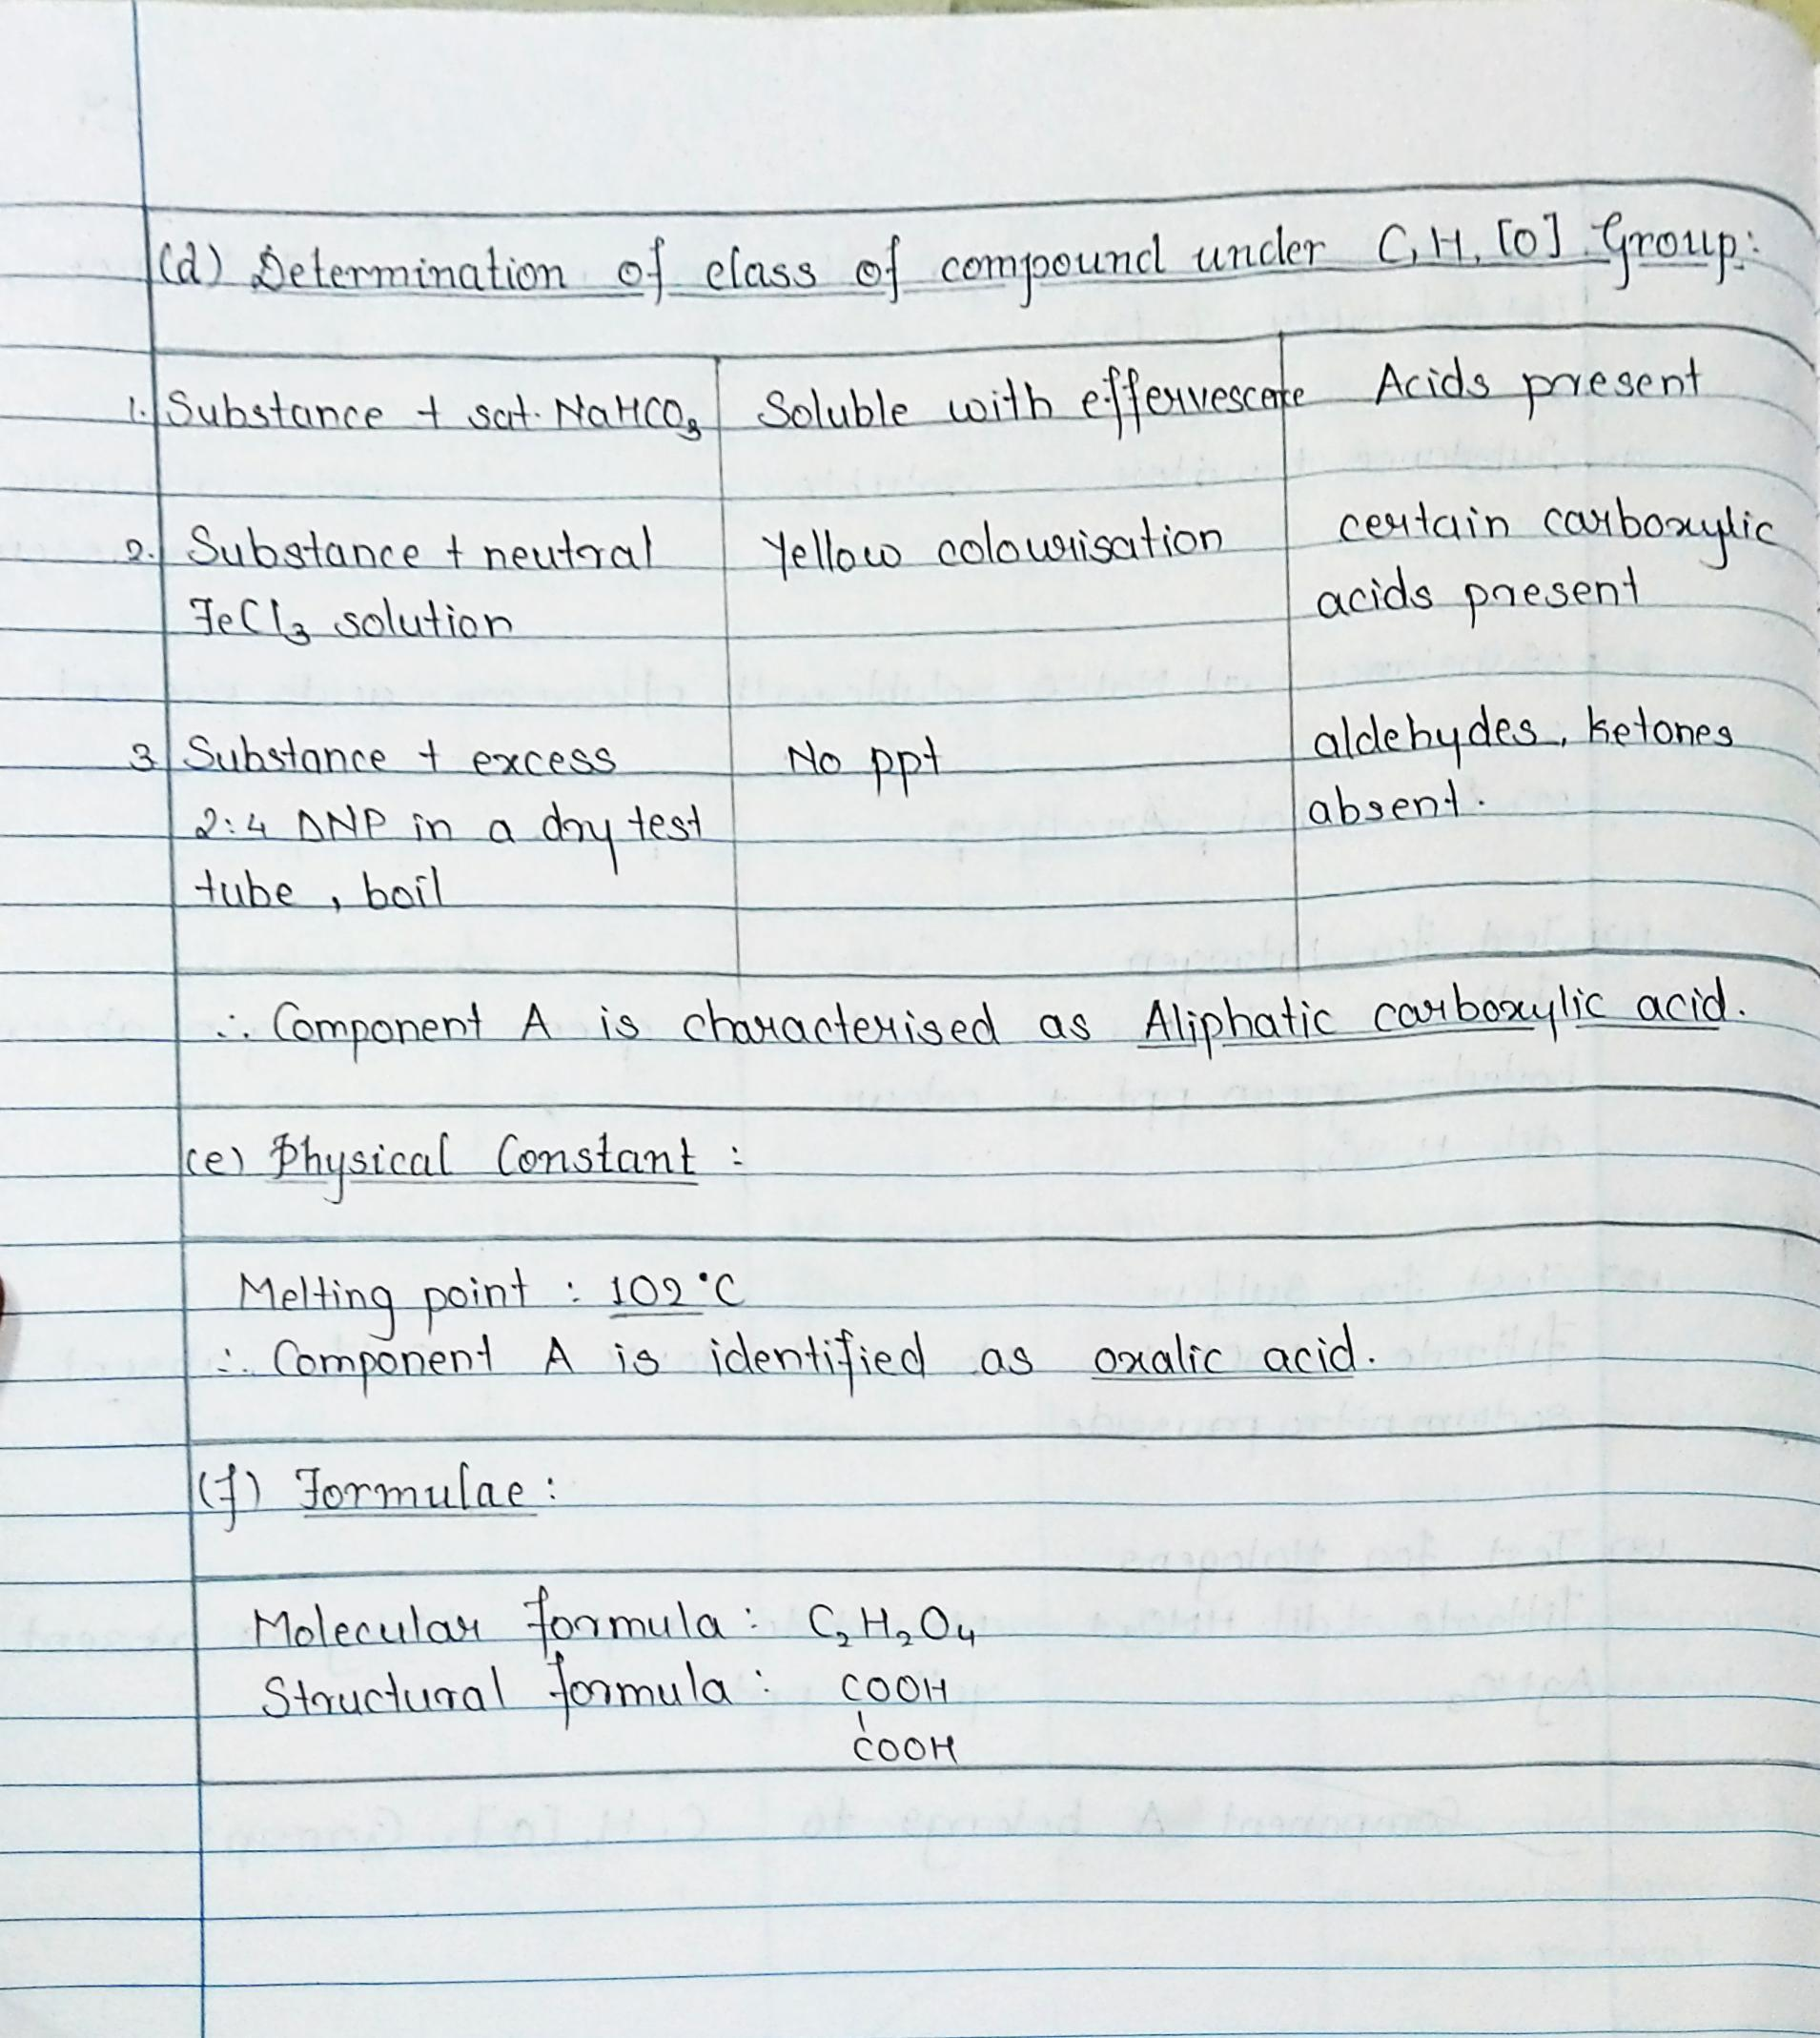 (d) Determination of class of compound under C, H, [O] Group:
1. Substance + sat. NaHCO₃ Soluble with effervescence Acids present
2. Substance + neutral Yellow colourisation certain carboxylic
FeCl₃ solution acids present
3. Substance + excess No ppt aldehydes, ketones
2:4 DNP in a dry test absent.
tube, boil
∴ Component A is characterised as Aliphatic carboxylic acid.
(e) Physical Constant :
Melting point : 102 °C
∴ Component A is identified as oxalic acid.
(f) Formulae :
Molecular formula : C₂H₂O₄
Structural formula : COOH
COOH